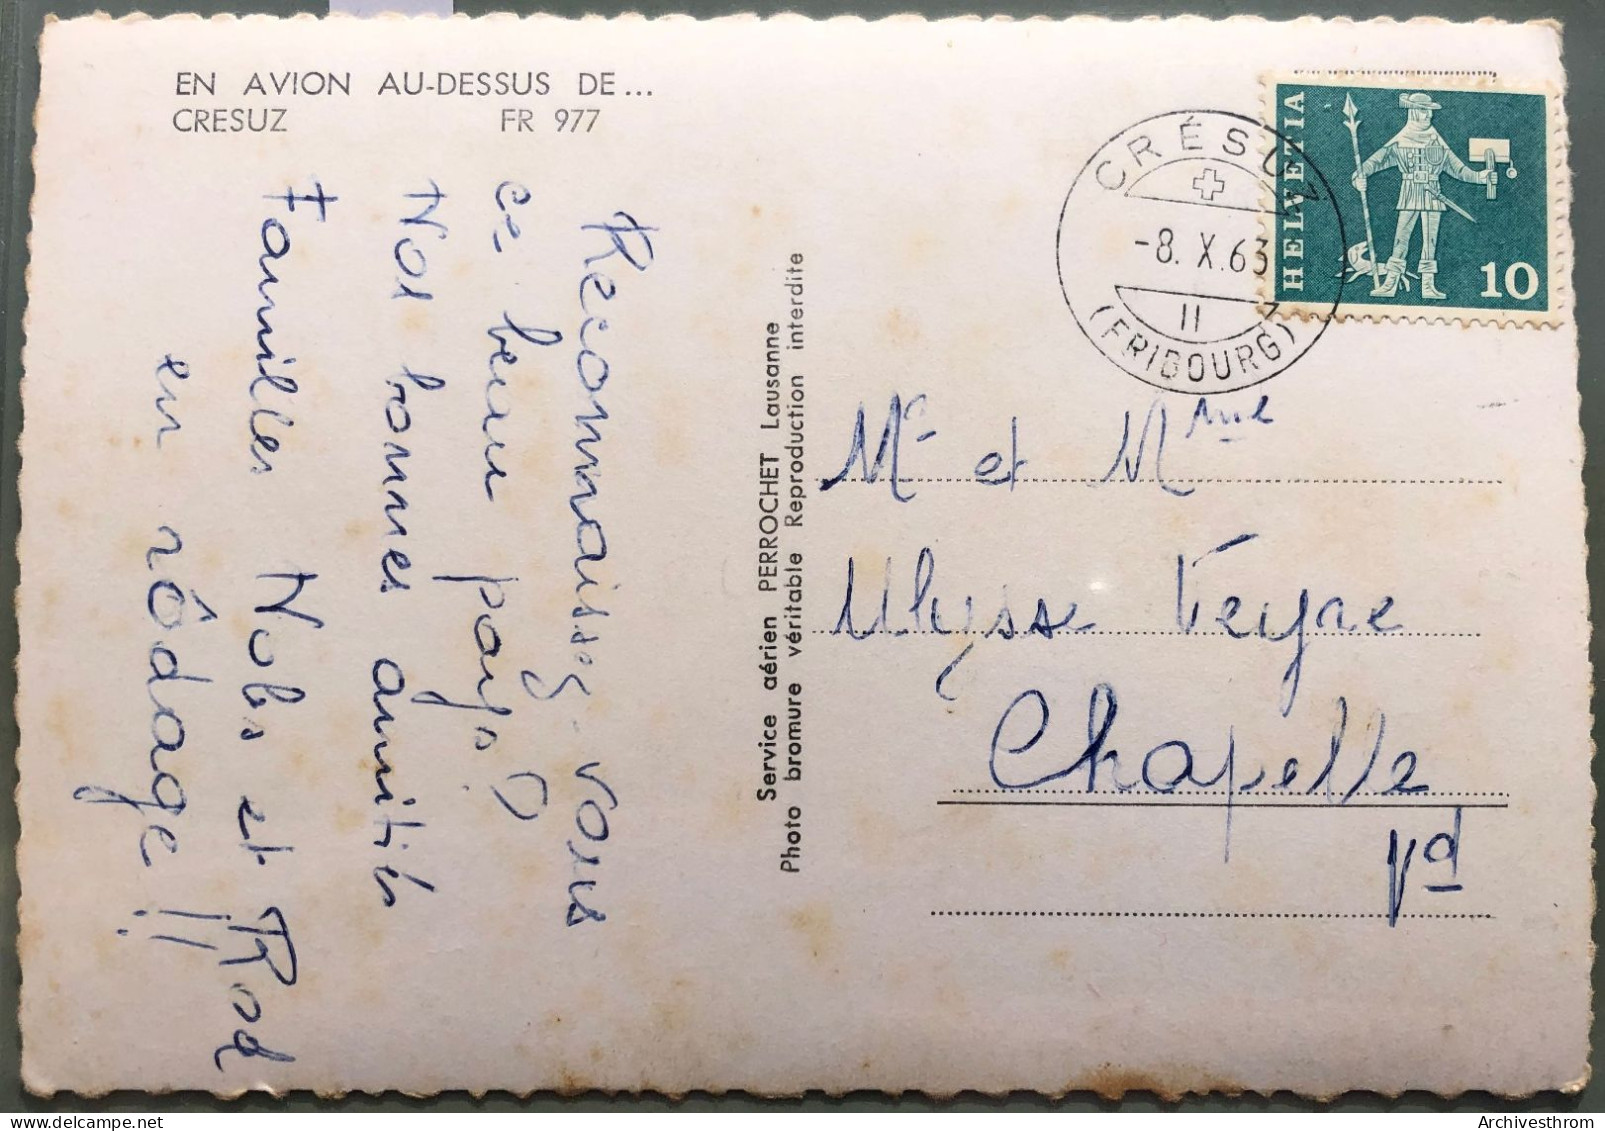 EN AVION AU-DESSUS DE...
CRESUZ FR 977
Reconnaissez-vous
ce beau pays?
Nos bonnes amitiés
Familles Nobs et Rod
en rôdage!!
Service aérien PERROCHET Lausanne
Photo bromure véritable Reproduction interdite
CRÉSUZ
-8. X. 63
II
(FRIBOURG)
HELVETIA
10
Mr et Mme
Ulysse Veyre
Chapelle
Vd
Archivesthrom